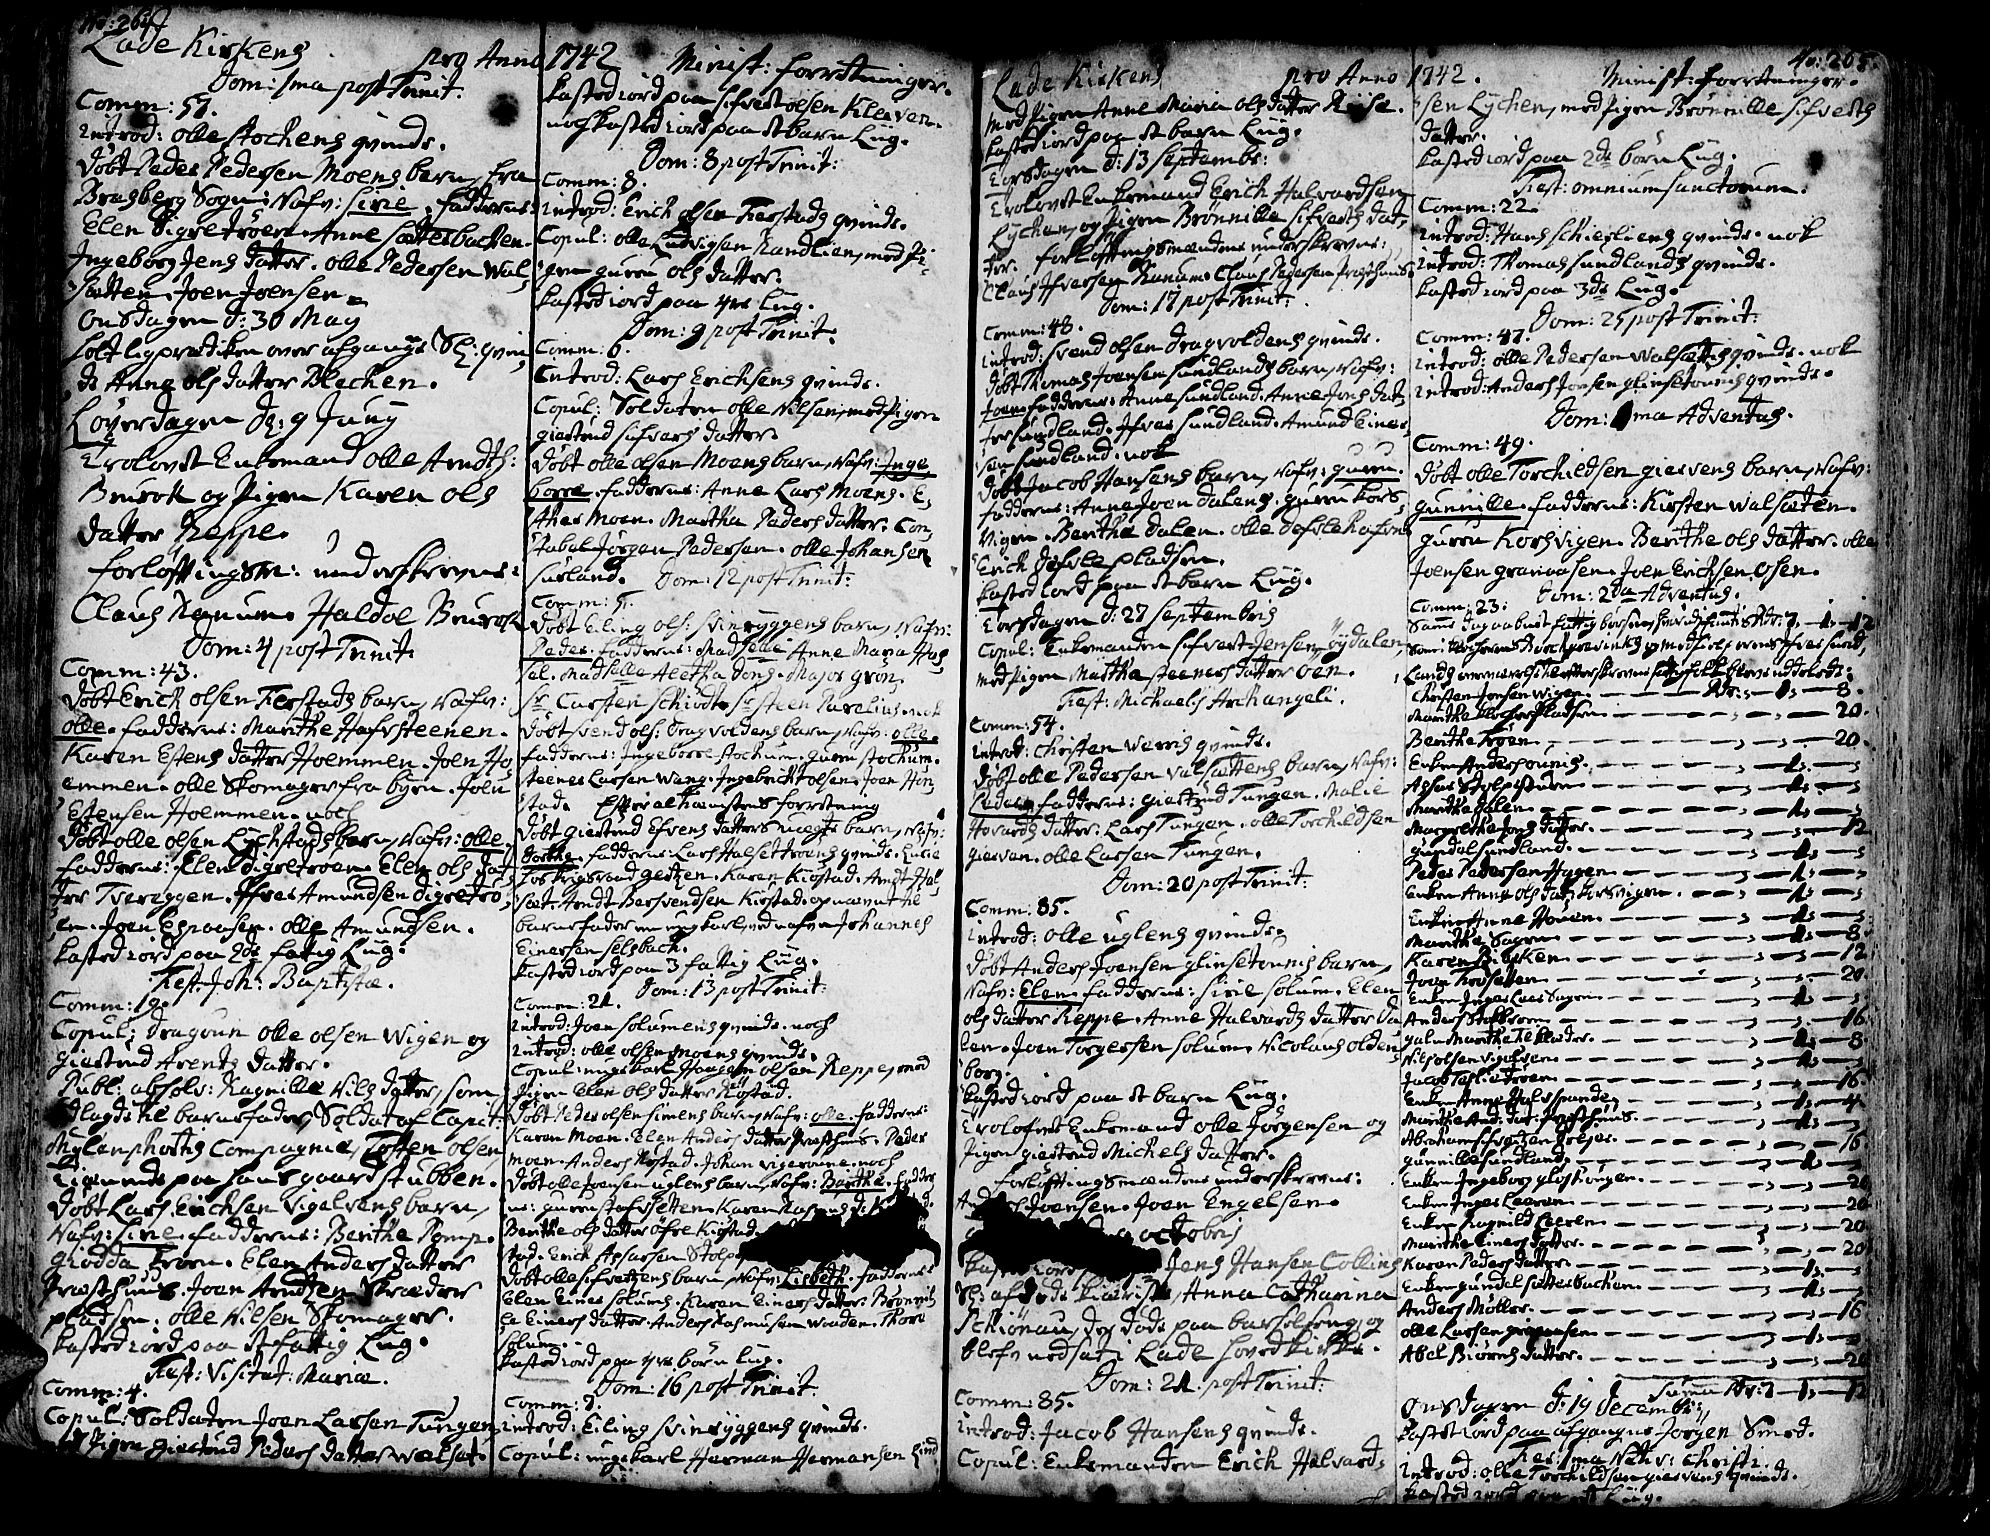 No: 264
Lade Kirkens pro Anno
Dom: 1ma post Trinit.
Comm: 57.
Introd: olle stochens qvinde.
Døbt Peder Pedersen Moens barn, fra
Bragsberg Sogn: Nafv: Sirie. fadderne:
Elen Digretrøen. Anne Sætterbachen.
Ingeborg Jens datter. olle Pedersen Wal,
sætten. Joen Joensen.
Onsdagen d: 30 May
holt ligprediken over afgangne Sl: qvin,
de Anna ols datter Blechen.
Løverdagen d: 9 Juny
Trolovet Enkemand olle Arndts:
Brurok og Pigen Karen ols
datter Reppe.
forløftningsm: underskrevne:
Claus Ranum. Haldol Brurok
Dom: 4 post Trinit:
Comm: 43.
Døbt Erich olsen Ferstads barn, Nafv:
olle. fadderne: Marithe Hafvsteenen.
Karen Estens datter Hoemmen. Joen Ho,
emmen. olle Skomager fra byen. Joen
Estensen Hoemmen. noch
Døbt olle olsen Lychstads barn, Nafv: olle.
fadderne: Elen Digretrøen. Elen ols dat,
ter Tvereggen. Ifver Amundsen Digretrø,
en. Joen Espaasen. olle Amundsen.
Kasted iord paa 2de fattig Liig.
Fest. Joh: Baptistæ.
Comm: 19.
Copul: dragoun olle olsen Wigen og
giertrud Arents datter.
Publ: absolv: Ragnille Nils datter, som
udlagde til barnefader Soldat af Capit:
Mylenphorths Compagnie, Tosten olsen
Eignende paa hans gaard Stubben.
Døbt Lars Erichsen Vigelvens barn,
Nafv: Sirie. fadderne: Berithe Romp.
Giødda Trøen. Elen Anders datter
Præsthuus. Joen Arntsen Skræder
pladsen. olle Nilsen Skomager.
Kasted iord paa et fattig Liig.
Fest: Visitat: Mariæ.
Comm: 4.
Copul: Soldaten Joen Larsen Tungen
med Pigen giertrud Peders datter Walset.
1742 Minist: forretninger.
Kasted iord paa Sifvert olsen Kleeven.
noch kasted iord paa et barn Liig.
Dom: 8 post Trinit:
Comm: 8.
Introd: Erich olsen Ferstads qvinde.
Copul: olle Ludvigsen Randlien, med Pi,
gen guren ols datter.
Kasted iord paa 4re Liig.
Dom: 9 post Trinit:
Comm: 6.
Introd: Lars Erichsens qvinde.
Copul: Soldaten olle Nilsen, med Pigen
giertrud Sifvers datter.
Døbt olle olsen Moens barn, Nafv: Inge
borre. fadderne: Anne Lars Moens. E,
ther Moen. Martha Peders datter. Con,
stabel Jørgen Pedersen. olle Johansen
Surland. Dom: 12 post Trinit:
Comm: 5.
Døbt Eiling ols: Svinryggens barn, Nafv:
Peder. fadderne: Madselle Anne Maria Hos,
sel. Madselle Aletha Dons. Major Grøn.
Sr Carsten Schiødt. Sr Steen Parelius. nok
Døbt Svend ols: Dragvoldens barn, Nafv: olle.
fadderne: Ingeborre Stochum. guren Stochum.
Steener Larsen Wang. Ingebricht olsen. Joen Hon,
stad. Efter alt tienistens forretning
Døbt giertrud Efvens datters uægte barn, Nafv:
Dorthe. fadderne: Lars Halset Trøens qvinde. Lusie
Ariet Berssvendsen Kirstad. og nævnt til
barnefader en ungkarl ved nafvn Johannes
Einersen Selsbach.
Kasted iord paa 3 fattig Liig.
Dom: 13 post Trinit:
Comm: 21.
Introd: Joen Solumens qvinde. noch
Introd: olle olsen Moens qvinde.
Copul: ungekarl Haagen olsen Reppe, med
Pigen Elen ols datter Rostad.
Døbt Peder olsen Simens barn, Nafv: olle. fadderne:
Karen Moen. Elen Anders datter Præsthuus. Peder
Moen. Anders Rostad. Johan Vigeraune. noch
Døbt olle Joensen Uglens barn, Nafv: Berithe. fadder
Berithe ols datter Øfre Kirstad.
stad. Erich Assersen Stolp
Døbt olle Sifvertsens barn, Nafv: Lisbeth. fadderne:
Elen Einer Solum. Karen Einers datter. Brønnil,
la Einers datter. Anders Rasmussen Weeden. Thore
Solum.
Kasted iord paa 4re børn Liig.
Dom: 16 post Trinit.
Comm: 7.
Introd: Eiling Svinryggens qvinde.
Copul: ungekarl Herman Hermansen Lind
Lade Kirkens pro Anno
med Pigen Anne Maria ols datter Riise.
Kasted iord paa et barn Liig.
Torsdagen d: 13 Septembr:
Trolovet Enkemand Erich Halvardsen
Lychen, og Pigen Brønnille Sifverts dat,
ter. forløftningsmændene underskrevne:
Claus Ifversen Ranum. Claus Pedersen Præsthuus.
Dom: 17 post Trinit:
Comm: 48.
Introd: Svend olsen Dragvoldens qvinde.
Døbt Thomas Joensen Sundlands barn, Nafv:
Joen. fadderne: Anne Sundland. Anne Jons dat,
ter Sundland. Ifver Sundland. Amund Einer,
sen Sundland. nok
Døbt Jacob Hansens barn, Nafv: guren.
fadderne: Anne Joen Dalens. guren Kors,
vigen. Berithe Dalen. olle Defvlehafvn.
Erich Defvlepladsen.
Kasted iord paa et barn Liig.
Torsdagen d: 27 Septembris
Copul: Enkemanden Sifvert Jensen Øydalen,
med Pigen Marithe Steeners datter Oen.
Fest: Michaelis Archangeli.
Comm: 54.
Introd: Christen Weeris qvinde.
Døbt olle Pedersen Valsættens barn, Nafv:
Peder. fadderne: giertrud Tungen. Malie
Hovards datter. Lars Tungen. olle Torchildsen
gierven. olle Larsen Tungen.
Dom: 20 post Trinit:
Comm: 85.
Introd: olle Uglens qvinde.
Døbt Anders Joensen glinsetonnis barn,
Nafv: Elen. fadderne: Sirie Solum. Elen
ols datter Reppe. Anne Halvards datter Da
len. Joen Torgersen Solum. Nicolaus Olden,
borg.
Kasted iord paa et barn Liig.
Trolofvet Enkemand olle Jørgensen og
Pigen giertrud Michels datter.
forløftningsmændene underskrevne:
Joensen. Joen Engelsen.
octobris
Jens Hansen Collins
Sl: afdøde kiæriste, Anna Catharina
Schiønau, der døde paa barselseng, og
blef nedsat i Lade hovedkirke.
Dom: 21. post Trinit:
Comm: 85.
Introd: Jacob Hansens qvinde.
Copul: Enkemanden Erich Halvard,
1742. Minist: forretninger. No: 265.
sen Lychen, med Pigen Brønnille Sifverts
datter.
Kasted iord paa 2de børn Liig.
Fest: omnium sanctorum.
Comm: 22.
Introd: Hans Schierliens qvinde. nok
Introd: Thomas Sundlands qvinde.
Kasted iord paa 3de Liig.
Dom: 25 post Trinit:
Comm: 47.
Introd: olle Pedersen Walsættes qvinde. nok
Introd: Anders Jonsen glinsetonnis qvinde.
Dom: 1ma Adventus.
Comm: 49.
Døbt olle Torchildsen giervens barn, Nafv:
gunnille. fadderne: Kirsten Walsæten.
guren Korsvigen. Berithe ols datter. olle
Joensen granaasen. Joen Erichsen Osen.
Dom: 2da Adventus.
Comm: 23:
Christen Jensen Wigen. — Rdr: — 1 — 8.
Marithe Klocherpladsen — 20.
Berithe Trøen, — 20.
Enken Anders onnis. — 1.
Asser Stolpestuen — 1.
Marithe Dalen — 1.
Margrethe Jons datter. — 12
gundel Sundland. — 1.
Peder Pedersen Hagen — 1.
Enken Anne ols dat: Korsvigen. — 1.
Enken Anne Hoven. — 1.
Marithe Sagen — 8.
Karen Birken — 12
Joen Trøsetten — 20.
Enken Inger Laes Sagen — 1.
Anders Stubbeen — 16.
— 8
Nils olsen Vigelven — 1.
Jacob Teslietrøen — 16.
Enken Anne Halvspanden — 4
Marithe And: dat: Præsthuus. — 1.
— 16.
gunnille Sundland. — 1.
Enken Ingeborg glossongen. — 20
Enken Inger Leeren. — 20
Enken Ragnild Leeren. — 20
Marithe Einers datter. — 20
Karen Peders datter. — 1.
Enken gundel Sætterbachen — 1.
Anders Møller. — 16
olle Larsen — 1.
Abel Biørns datter. — 20
Suma Rdr: 7 — 1 — 12
Onsdagen d: 19 Decembris
Kasted iord paa afgangne Jørgen Smed.
Fer: 1ma Nativ: Christi.
Introd: olle Torchildsen giervens qvinde.